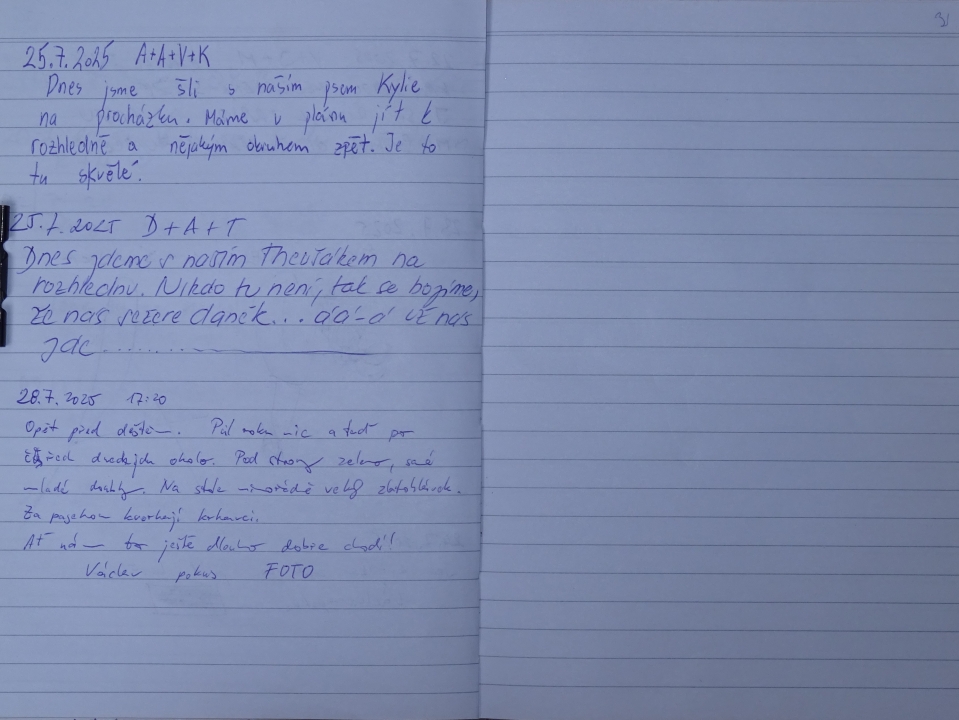 31
25.7.2025 A+A+V+K
Dnes jsme šli s naším psem Kylie
na procházku. Máme v plánu jít k
rozhledně a nějakým okruhem zpět. Je to
tu skvělé.
25.7.2025 D+A+T
Dnes jdeme s naším Theuťákem na
rozhlednu. Nikdo tu není, tak se bojíme,
že nás sežere daněk... áá-á už nás
jde..........
28.7.2025 17:20
Opět před deštěm. Půl roku nic a teď po
dnech okolo. Pod stromy zeleno, samé
mladé. Na stole mimořádně velký zlatohlávek.
Za pasekou krkavci.
Ať nám to ještě dlouho dobře chodí!
Václav pokus FOTO